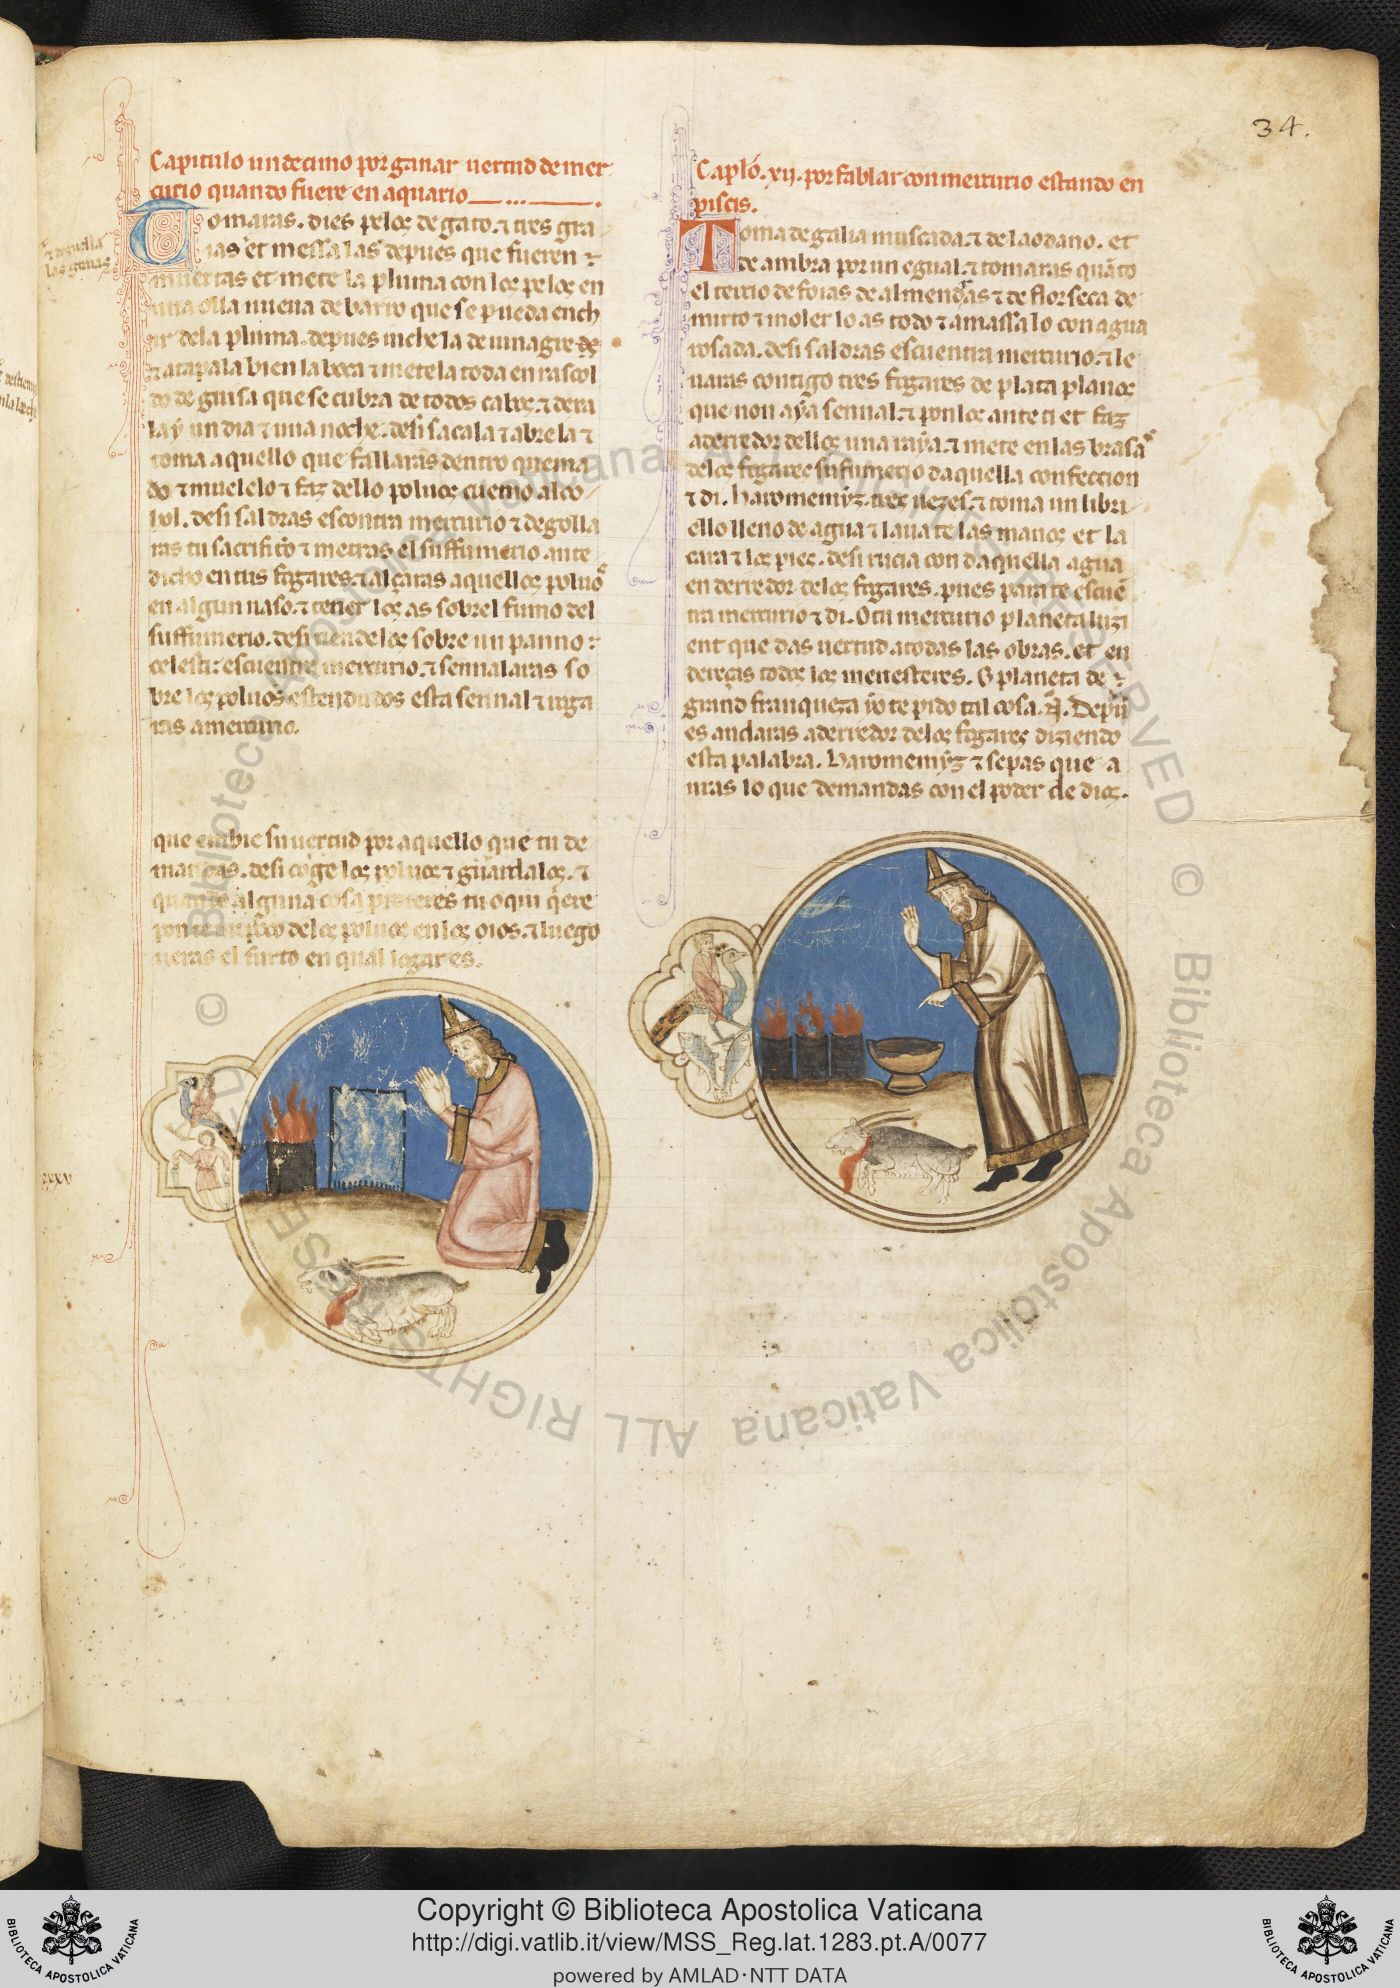 34.
Capitulo undecimo por ganar uertud de mer
curio quando fuere en aquario
Tomaras. dies pelos de gato. ⁊ tres gra
ias et messa las depues que fueren
muertas et mete la pluma con los pelos en
una olla nueua de barro que se pueda ench
ir dela pluma. depues inche la de uinagre de
⁊ atapala bien la boca ⁊ metela toda en rascol
do de guisa que se cubra de todos cabos. ⁊ dexa
la ẏ un dia ⁊ una noche. desi sacala ⁊ abrela ⁊
toma aquello que fallaras dentro quema
do ⁊ muelelo ⁊ faz dello poluos cuemo alco
hol. desi saldras escontra mercurio ⁊ degolla
ras tu sacrifiçio ⁊ metras el suffumerio ante
dicho en tus fogares. ⁊ alçaras aquellos poluos
en algun uaso. ⁊ tener los as sobrel fumo del
suffumerio. desi tiendelos sobre un panno
celesti escuentra mercurio. ⁊ sennalaras so
bre los poluos estendudos esta sennal ⁊ roga
ras a mercurio.
que embie su uertud por aquello que tu de
mandas. desi coge los poluos ⁊ guardalos. ⁊
quando alguna cosa perdieres tu o qui q̇ere
ponte un poco de los poluos en los oios. ⁊ luego
ueras el furto en qual logar es.
⁊ deguella
las graias
xxxv
Capl̃o. xij. por fablar con mercurio estando en
piscis.
Toma de galia muscada. ⁊ de laodano. et
de ambra por un egual. ⁊ tomaras quãto
el tercio de foias de almendras ⁊ de flor seca de
mirto ⁊ moler lo as todo ⁊ amassalo con agua
rosada. desi saldras escuentra mercurio. ⁊ le
uaras contigo tres fogares de plata planos
que non aẏa sennal. ⁊ ponlos ante ti et faz
aderredor dellos una raẏa. ⁊ mete en las brasas
delos fogares sufumerio daquella confeccion
⁊ di. haromemẏz. tres uezes. ⁊ toma un libri
ello lleno de agua ⁊ laua te las manos et la
cara ⁊ los pies. desi rucia con daquella agua
en derredor delos fogares. pues parate escuẽ
tra mercurio ⁊ di. O tu mercurio planeta luzi
ent que das uertud a todas las obras. et en
dereças todos los menesteres. O planeta de
grand franqueza ẏo te pido tal cosa. Depu
es andaras aderredor delos fogares diziendo
esta palabra. haromemẏz ⁊ sepas que a
uras lo que demandas con el poder de dios.
© Biblioteca Apostolica Vaticana ALL RIGHTS RESERVED
Copyright © Biblioteca Apostolica Vaticana
http://digi.vatlib.it/view/MSS_Reg.lat.1283.pt.A/0077
powered by AMLAD·NTT DATA
BIBLIOTECA APOSTOLICA VATICANA
BIBLIOTECA APOSTOLICA VATICANA